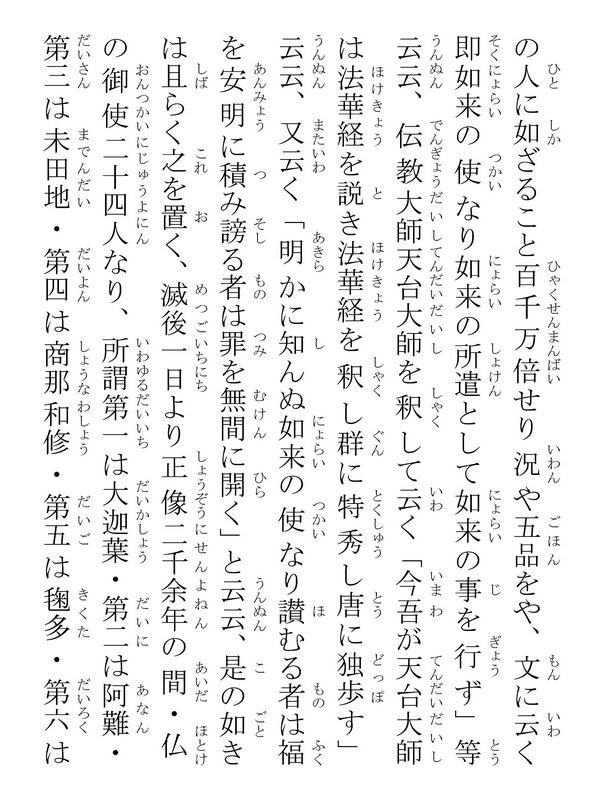 の人に如ざること百千万倍せり況や五品をや、文に云く
即如来の使なり如来の所遣として如来の事を行ず」等
云云、伝教大師天台大師を釈して云く「今吾が天台大師
は法華経を説き法華経を釈し群に特秀し唐に独歩す」
云云、又云く「明かに知んぬ如来の使なり讃むる者は福
を安明に積み謗る者は罪を無間に開く」と云云、是の如き
は且らく之を置く、滅後一日より正像二千余年の間・仏
の御使二十四人なり、所謂第一は大迦葉・第二は阿難・
第三は未田地・第四は商那和修・第五は毱多・第六は